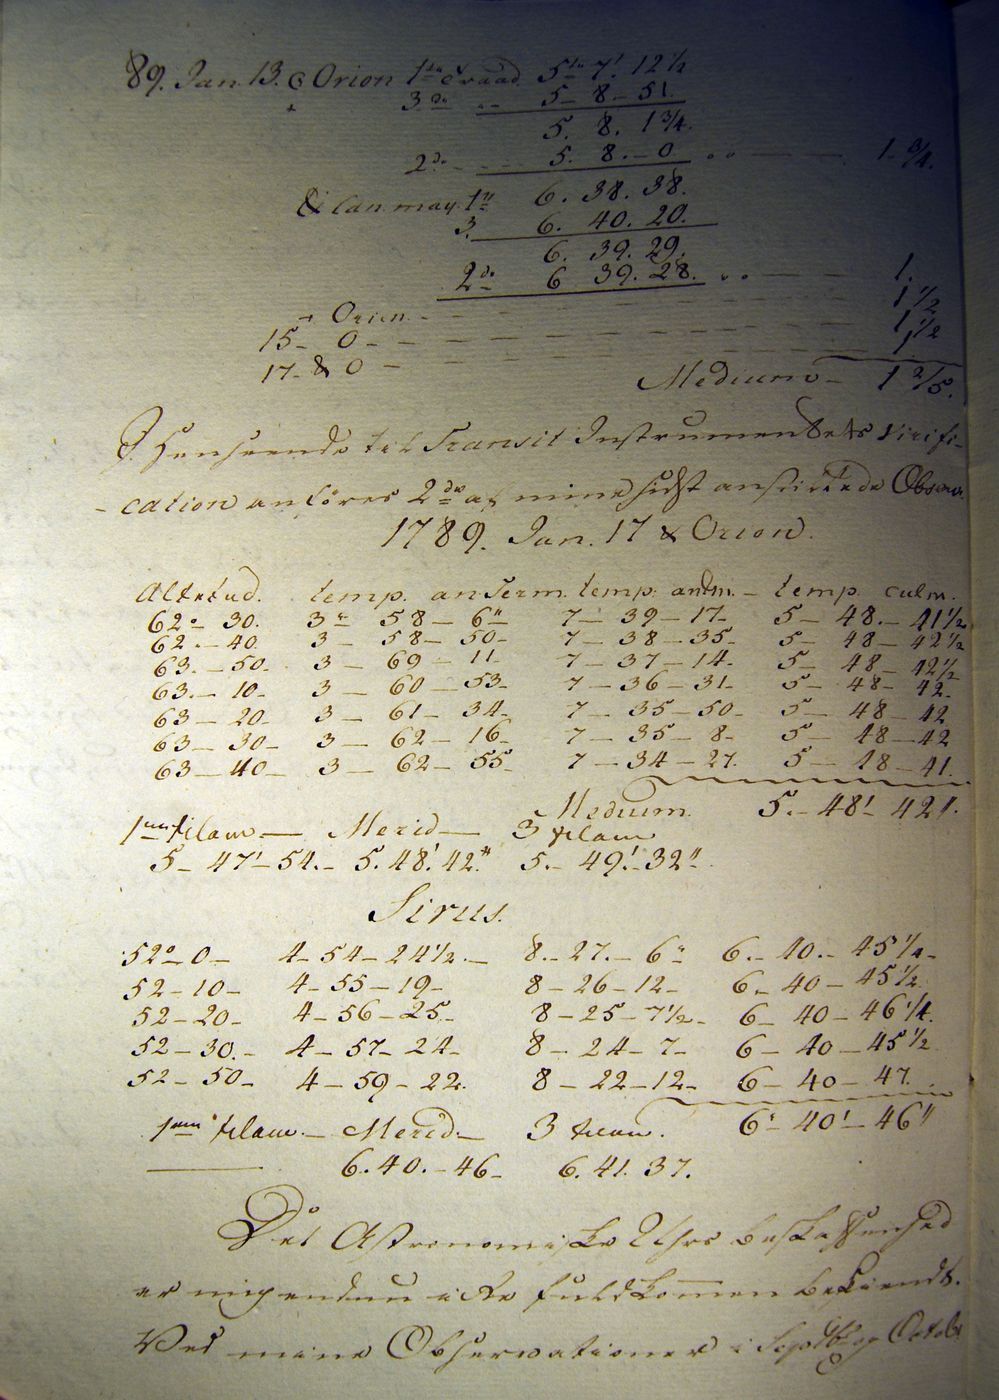 89. Jan. 13. Orion 1te Traad 5tu 7' 12½
3de -- 5 - 8 - 51.
5. 8. 1¾.
2de - - - 5. 8. - 0 - - - 1 - ¾.
& Can. may. 1te 6. 38. 38.
3. 6. 40. 20.
6. 39. 29.
2de 6 39. 28. - - - 1.
Orion - - - 1½
15 - 0 - - - 1½
17 - & 0 - - - 1
Medium - 1 2/5.
I Henseende til Transit Instrumentets Virifi-
-cation anföres 2de af mine sidst anstillede Observ.
1789. Jan. 17 α Orion.
Altitud. temp. anterm. temp. - temp. culm.
62° - 30. 3u 58 - 6" 7 - 39 - 17 - 5 - 48. - 41½
62. - 40. 3 - 58 - 50 - 7 - 38 - 35 - 5 - 48 - 42½
63. - 50. 3 - 69 - 11. 7 - 37 - 14. 5 - 48 - 42½
63. - 10 - 3 - 60 - 53. 7 - 36 - 31. 5 - 48 - 42.
63 - 20 - 3 - 61 - 34. 7 - 35 - 50 - 5 - 48 - 42
63 - 30 - 3 - 62 - 16. 7 - 35 - 8 - 5 - 48 - 42
63 - 40 - 3 - 62 - 55. 7 - 34 - 27. 5 - 48 - 41.
Medium. 5. - 48' 42".
1mum filam - Merid - 3 filam
5 - 47' - 54. - 5. 48'. 42." 5. - 49'. - 32"
Sirus.
52° - 0 - 4 - 54 - 24½. - 8. - 27. - 6" 6. - 40. - 45¼ -
52 - 10 - 4 - 55 - 19 - 8 - 26 - 12 - 6. - 40 - 45½.
52 - 20 - 4 - 56 - 25. 8 - 25 - 7½ - 6 - 40 - 46¼.
52 - 30. - 4 - 57 - 24 - 8 - 24 - 7 - 6 - 40 - 45½
52 - 50 - 4 - 59 - 22. 8 - 22 - 12 - 6 - 40 - 47.
1mum filam. - Merid. - 3 filam. 6" - 40' - 46"
6. 40. - 46 - 6. 41. 37.
Det Astronomiske Uhrs beskaffenhed
er mig endnu ikke fuldkommen bekiendt.
Ved mine Observationer i Septbr og Octob